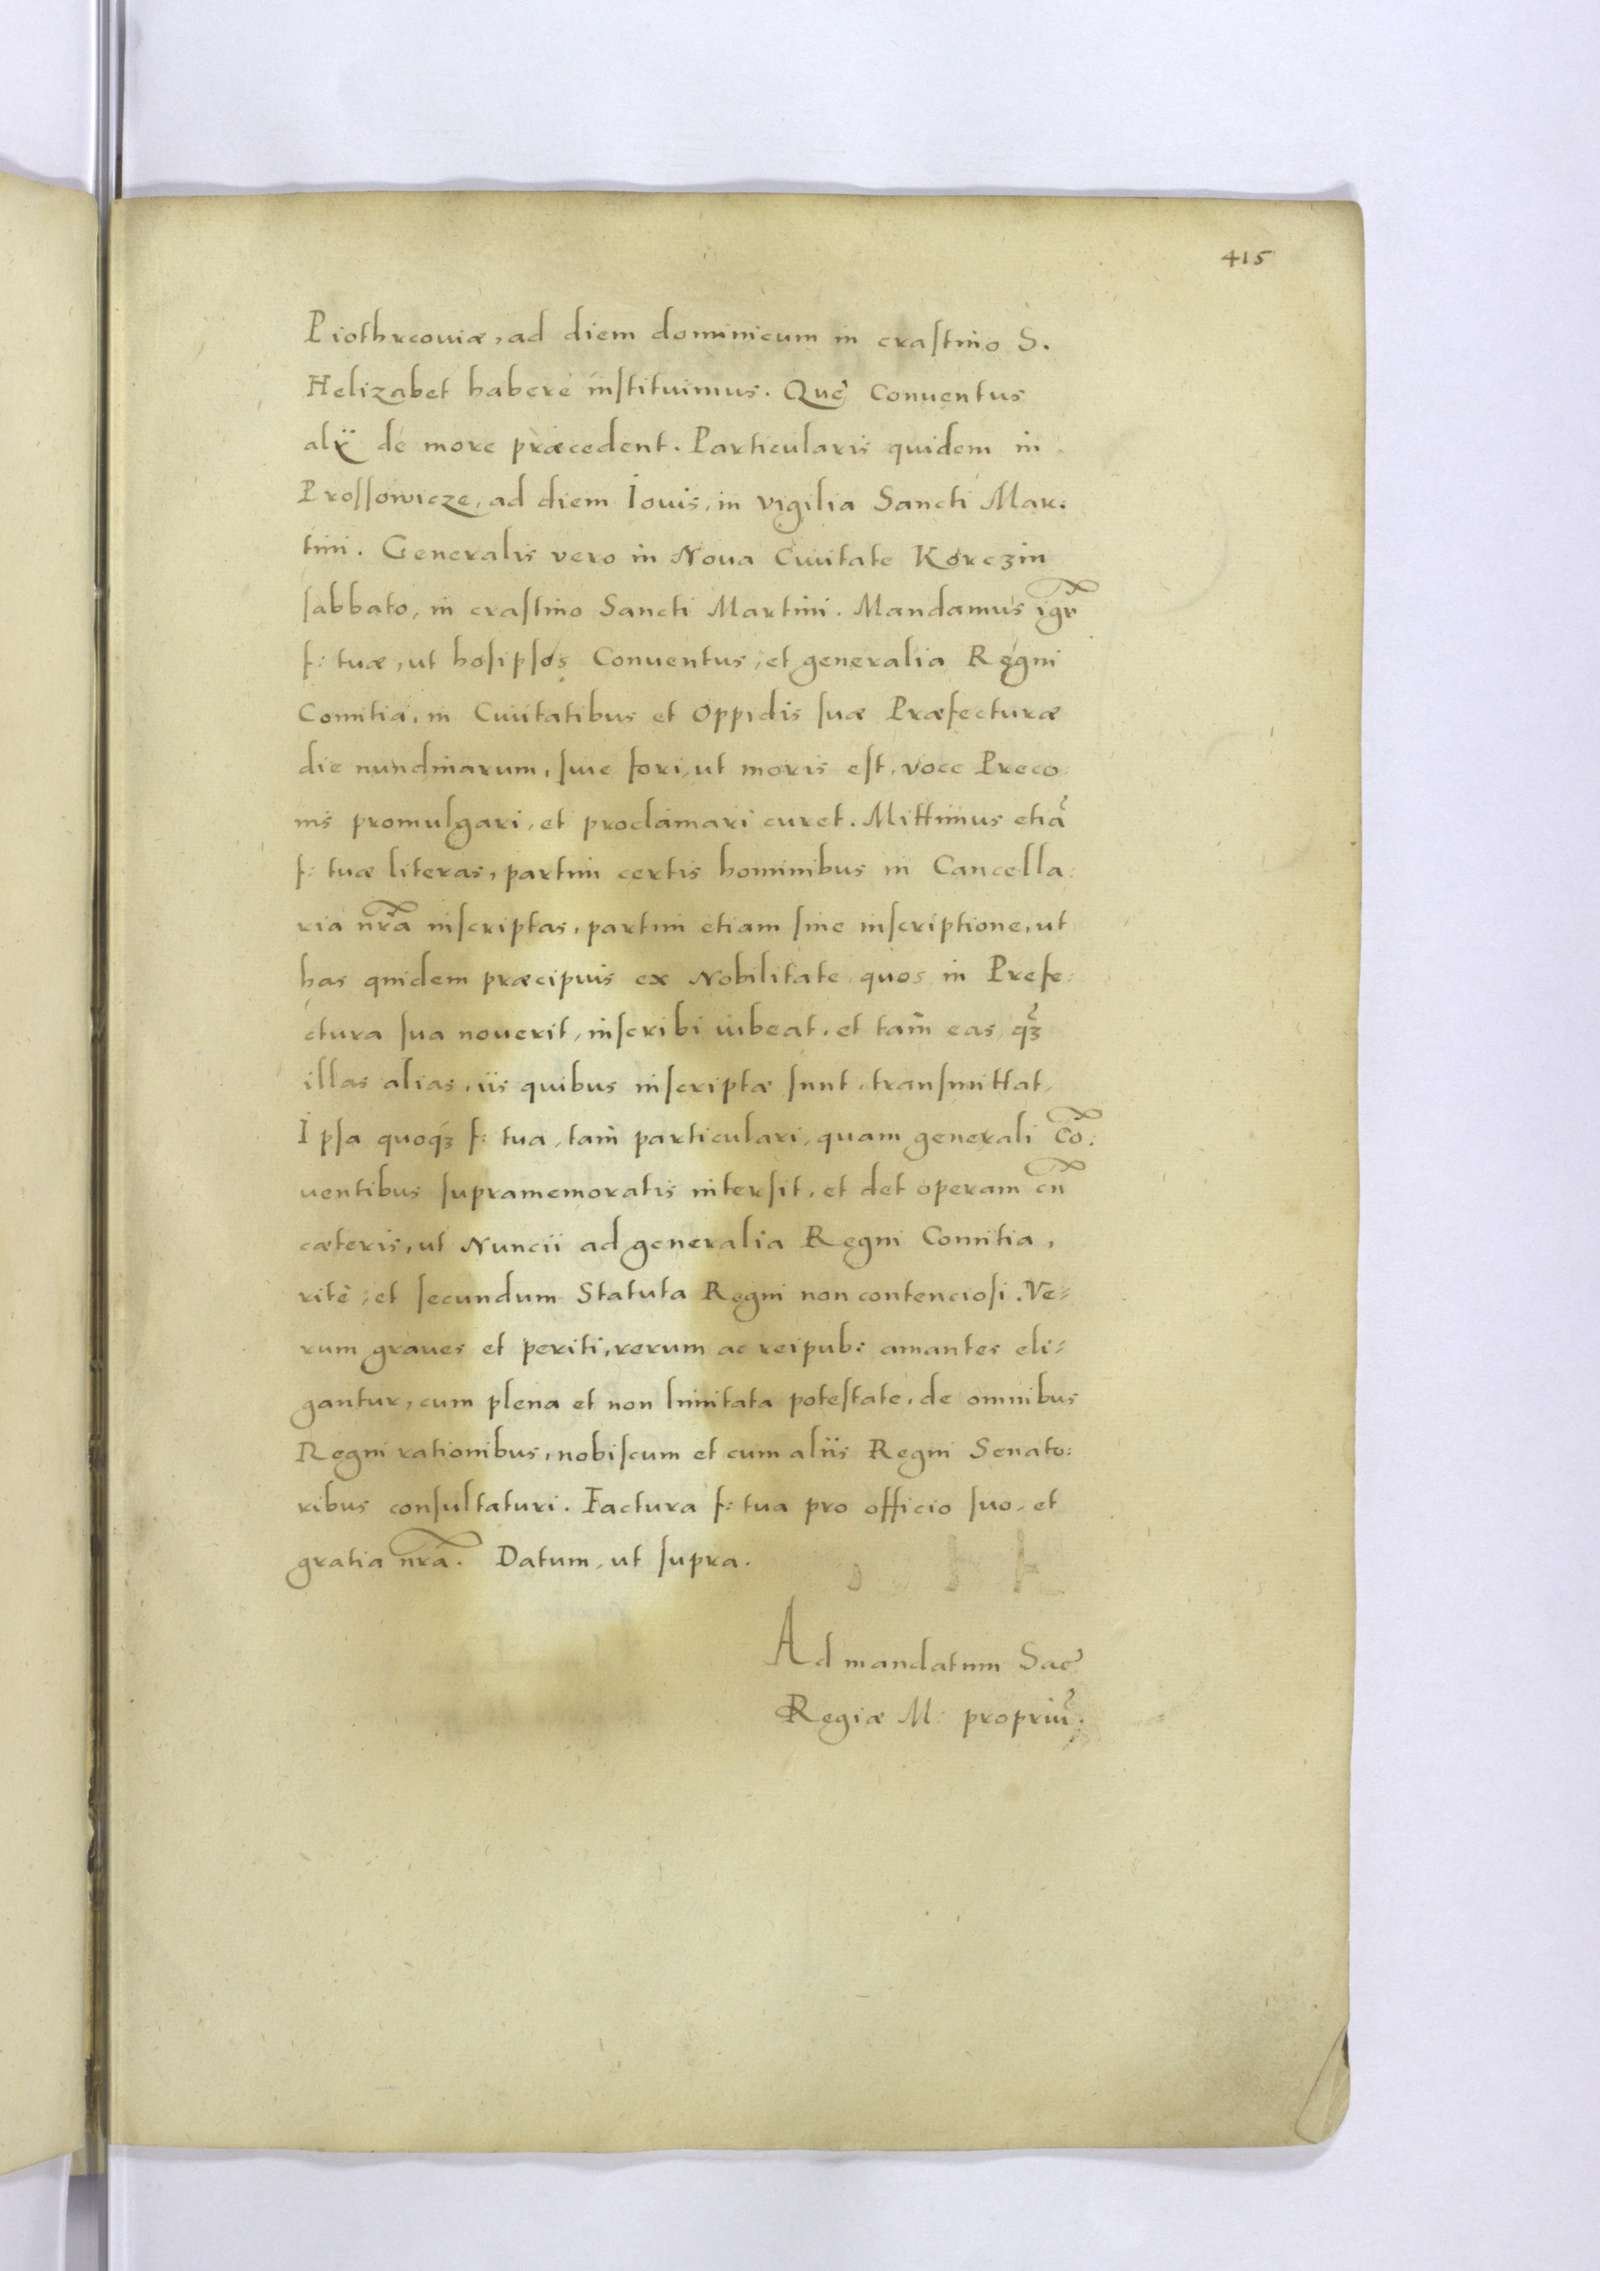 415
Piothrcouiæ, ad diem dominicum in craſtino S.
Helizabet habere inſtituimus. Quẽ Conuentus
alÿ de more præcedent. Particularis quidem in
Proſſowicze, ad diem Iouis, in vigilia Sancti Mar:
tini. Generalis vero in Noua Ciuitate Korczin
ſabbato, in craſtino Sancti Martini. Mandamus igr̃
f: tuæ, ut hoſipſos Conuentus, et generalia Regni
Comitia, in Ciuitatibus et Oppidis ſuæ Præfecturæ
die nundinarum, ſiue fori, ut moris eſt, voce Preco:
nis promulgari, et proclamari curet. Mittimus etiã
f: tuæ literas, partim certis hominibus in Cancella:
ria nr̃a inſcriptas, partim etiam ſine inſcriptione, ut
has quidem præcipuis ex Nobilitate quos in Prefe:
ctura ſua nouerit, inſcribi iubeat, et tam̃ eas, qʒ̃
illas alias, iis quibus inſcriptæ ſunt, tranſmittat,
Ipſa quoqʒ f: tua, tam̃ particulari, quam generali Cõ:
uentibus ſupramemoratis interſit, et det operam cũ
cæteris, ut Nuncii ad generalia Regni Comitia,
ritè, et ſecundum Statuta Regni non contencioſi. Ve⸗
rum graues et periti, rerum ac reipub: amantes eli⸗
gantur, cum plena et non limitata poteſtate, de omnibus
Regni rationibus, nobiſcum et cum aliis Regni Senato:
ribus conſultaturi. Factura f: tua pro officio ſuo, et
gratia nr̃a. Datum, ut ſupra.
Ad mandatum Sac̃
Regiæ M: propriũ.